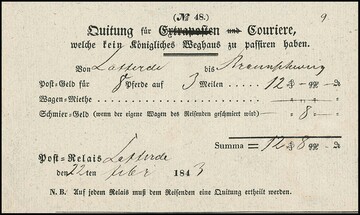 (№ 48.) 9
Quitung für Extraposten und Couriere,
welche kein Königliches Weghaus zu passiren haben.
Von Lafferde bis Braunschweig
Post-Geld für 8 Pferde auf 3 Meilen 12 ₰
Wagen-Miethe
Schmier-Geld (wenn der eigene Wagen des Reisenden geschmiert wird) 8
Summa = 12 8
Post-Relais Lafferde
den 22ten 1843
N. B. Auf jedem Relais muß dem Reisenden eine Quitung ertheilt werden.